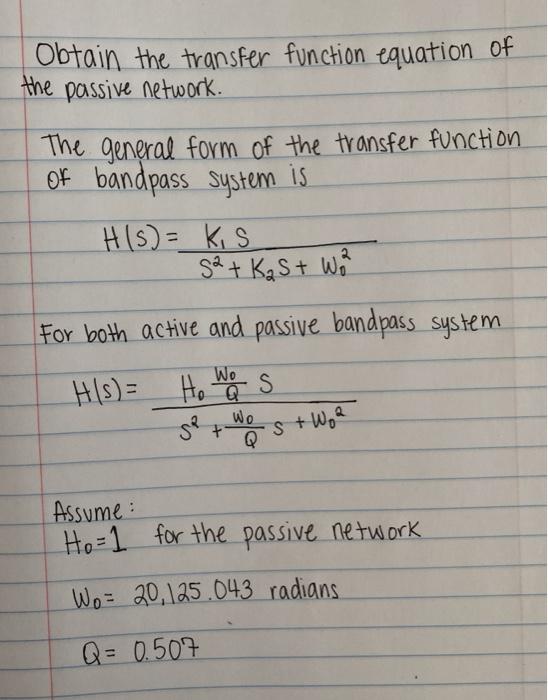 Obtain the transfer function equation of
the passive network.
The general form of the transfer function
of bandpass system is
H(s) = K₁ S / S² + K₂ S + W₀²
For both active and passive bandpass system
H(s) = H₀ W₀/Q S / S² + W₀/Q S + W₀²
Assume:
H₀ = 1 for the passive network
W₀ = 20,125.043 radians
Q = 0.507